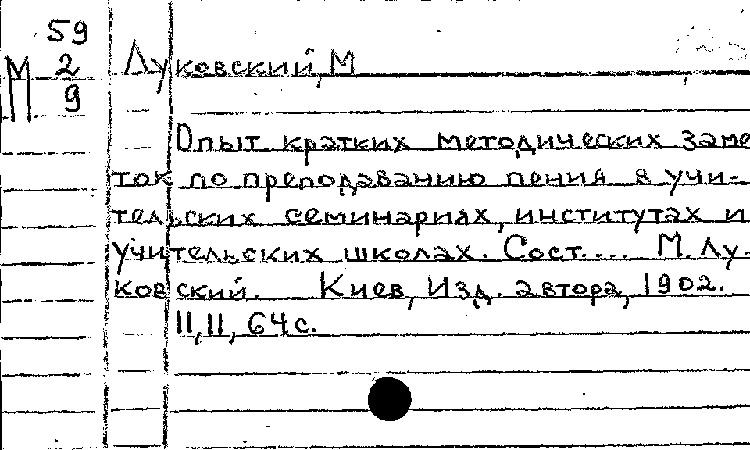 59
М 2
П 9
Луковский, М
Опыт кратких методических заме
ток по преподаванию пения в учи-
тельских семинариях, институтах и
учительских школах. Сост.... М. Лу-
ковский. Киев, Изд. автора, 1902.
II, II, 64 с.